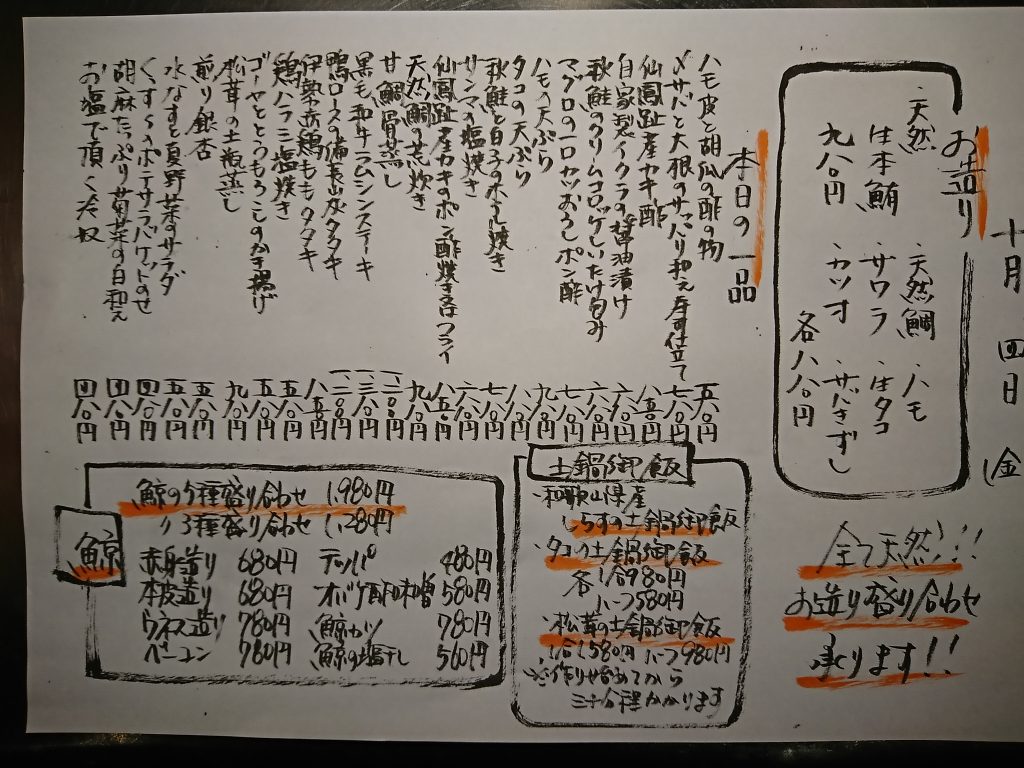 十月四日(金
お造り
・天然 生本鮪 九八〇円
・天然鯛 ・ハモ
・サワラ ・生タコ
・カツオ ・きずし
各八八〇円
全て天然!!!
お造り盛り合わせ
承ります!!
本日の一品
ハモ皮と胡瓜の酢の物 五八〇円
〆サバと大根のサッパリ和え寿司仕立て 七八〇円
仙鳳趾産カキ酢 八五〇円
自家製イクラの醤油漬け 六八〇円
秋鮭のクリームコロッケしいたけ包み 六八〇円
マグロの一口カツおろしポン酢 七八〇円
ハモの天ぷら 九八〇円
タコの天ぷら 八八〇円
秋鮭と白子のホイル焼き 七八〇円
サンマの塩焼き 六八〇円
仙鳳趾産カキのポン酢焼き 又はフライ 八五〇円
天然鯛の荒炊き 九八〇円
甘鯛骨蒸し
黒毛和牛ラムシンステーキ
鴨ロースの備長炭タタキ
伊勢赤鶏ももタタキ 八五〇円
鶏ハラミ塩焼き 五八〇円
ゴーヤととうもろこしのかき揚げ 五八〇円
松茸の土瓶蒸し 九八〇円
煎り銀杏 五八〇円
水なすと夏野菜のサラダ 五八〇円
くずし ポテサラバゲットのせ 四八〇円
胡麻たっぷり菊菜の白和え 四八〇円
お塩で頂く冷奴 四八〇円
土鍋御飯
・和歌山県産
しらすの土鍋御飯
・タコの土鍋御飯
各 1合980円
ハーフ580円
・松茸の土鍋御飯
1合1,580円 ハーフ980円
※作り始めてから
三十分程かかります
鯨
鯨の5種盛り合わせ 1,980円
〃 3種盛り合わせ 1,280円
赤身造り 680円 テッパ 480円
本皮造り 680円 オバケ酢味噌 580円
ウネス造り 780円 鯨カツ 780円
ベーコン 780円 鯨の塩干し 560円